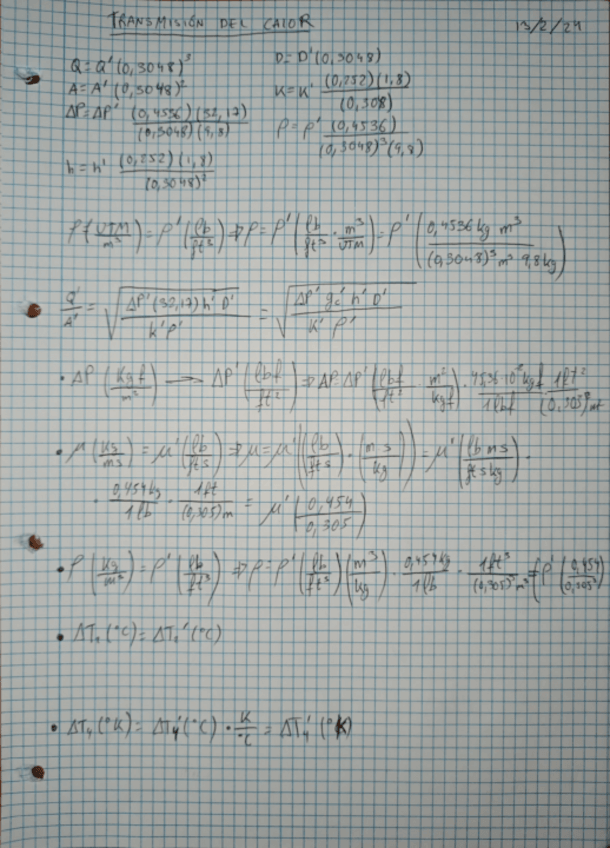 TRANSMISIÓN DEL CALOR 13/2/24
Q = Q' (0,3048)³ D = D' (0,3048)
A = A' (0,3048)² K = K' (0,252)(1,8)/(0,308)
ΔP = ΔP' (0,4536)(32,17)/(0,3048)(9,8) ρ = ρ' (0,4536)/(0,3048)³(9,8)
h = h' (0,252)(1,8)/(0,3048)²
ρ (UTM/m³) = ρ' (lb/ft³) ⇒ ρ = ρ' (lb/ft³ · m³/UTM) = ρ' (0,4536 kg m³/(0,3048)³ m³ 9,8 kg)
Q'/A' = √(ΔP' (32,17) h' D'/K' ρ') = √(ΔP' gc' h' D'/K' ρ')
• ΔP (Kgf/m²) → ΔP' (lbf/ft²) ⇒ ΔP = ΔP' (lbf/ft² · m²/kgf) · 45,36·10⁻² kgf/1 lbf · 1ft²/(0,305)² m²
• μ (Kg/ms) = μ' (lb/fts) ⇒ μ = μ' ((lb/fts) · (m s/kg)) = μ' (lb ms/fts kg) ·
· 0,454 kg/1 lb · 1ft/(0,305)m = μ' (0,454/0,305)
• ρ (kg/m³) = ρ' (lb/ft³) ⇒ ρ = ρ' (lb/ft³) (m³/kg) · 0,454 kg/1 lb · 1ft³/(0,305)³ m³ = ρ' (0,454/(0,305)³)
• ΔT₁ (°C) = ΔT₁' (°C)
• ΔT₄ (°K) = ΔT₄' (°C) · K/°C = ΔT₄' (°K)